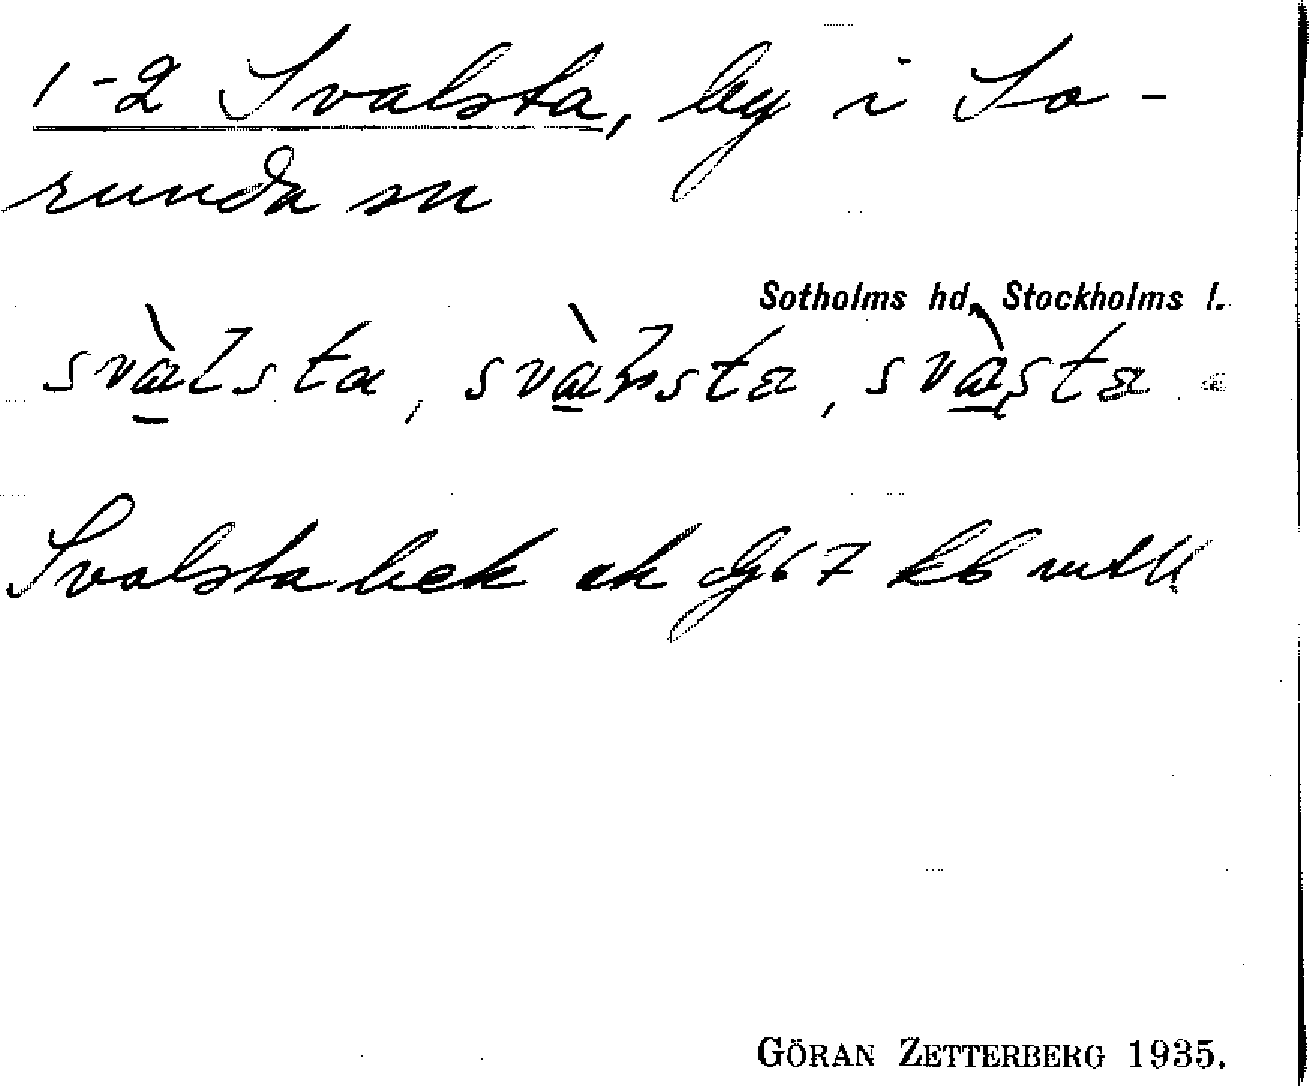 1-2 Svalsta, by i So-
runda sn
Sotholms hd, Stockholms l.
svàlsta, svàlsta, svàsta
Svalsta bek ek
GÖRAN ZETTERBERG 1935.